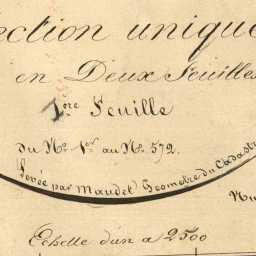 ection unique
en Deux Feuilles
1ère Feuille
du Nº. 1er au Nº. 572.
Levée par Maudet Géometre du Cadastr
Echelle d'un a 2500